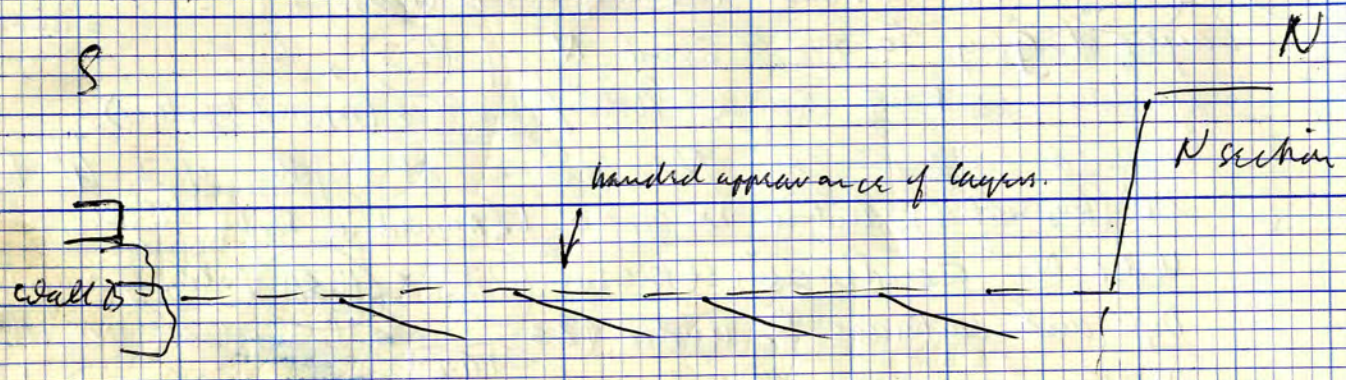 S
N
N section
banded appearance of layers.
Wall B